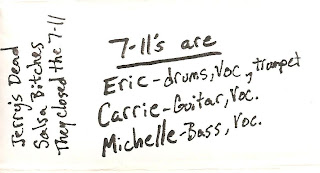 Jerry's Dead
Salsa Bitches
They closed the 7-11
7-11's are
Eric-drums, Voc, trumpet
Carrie-Guitar, Voc.
Michelle-Bass, Voc.